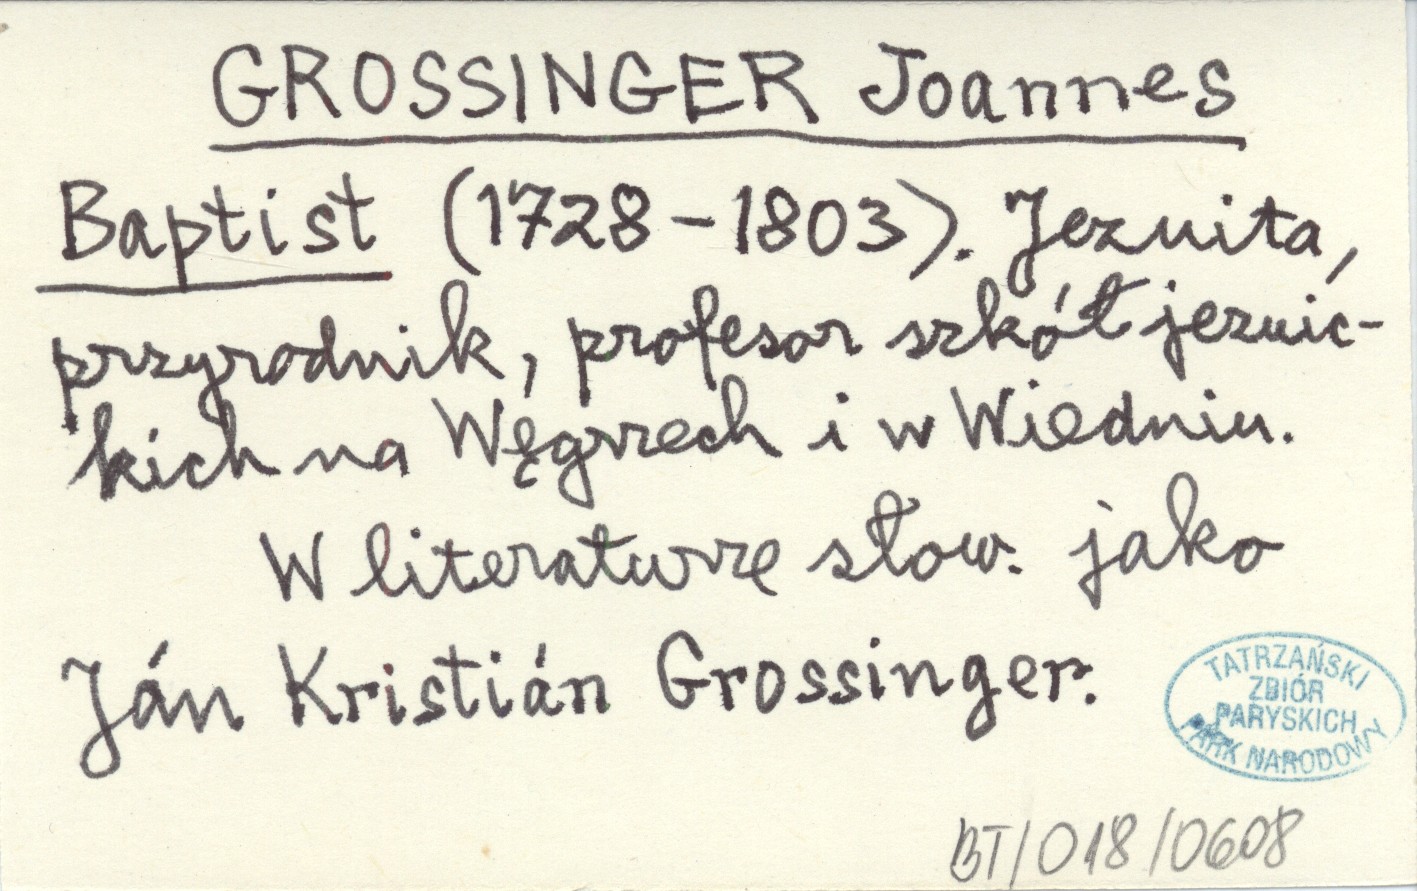 GROSSINGER Joannes
Baptist (1728-1803). Jezuita,
przyrodnik, profesor szkół jezuic-
kich na Węgrzech i w Wiedniu.
W literaturze słow. jako
Ján Kristián Grossinger.
TATRZAŃSKI
ZBIÓR
PARYSKICH
PARK NARODOWY
BT/018/0608